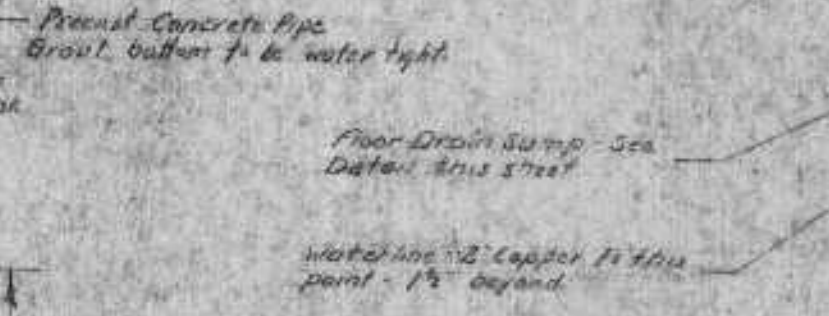 Precast Concrete Pipe
Grout bottom to be water tight.
Floor Drain Sump - See
Detail this sheet
Waterline 2" Copper to this
point - 1½" beyond